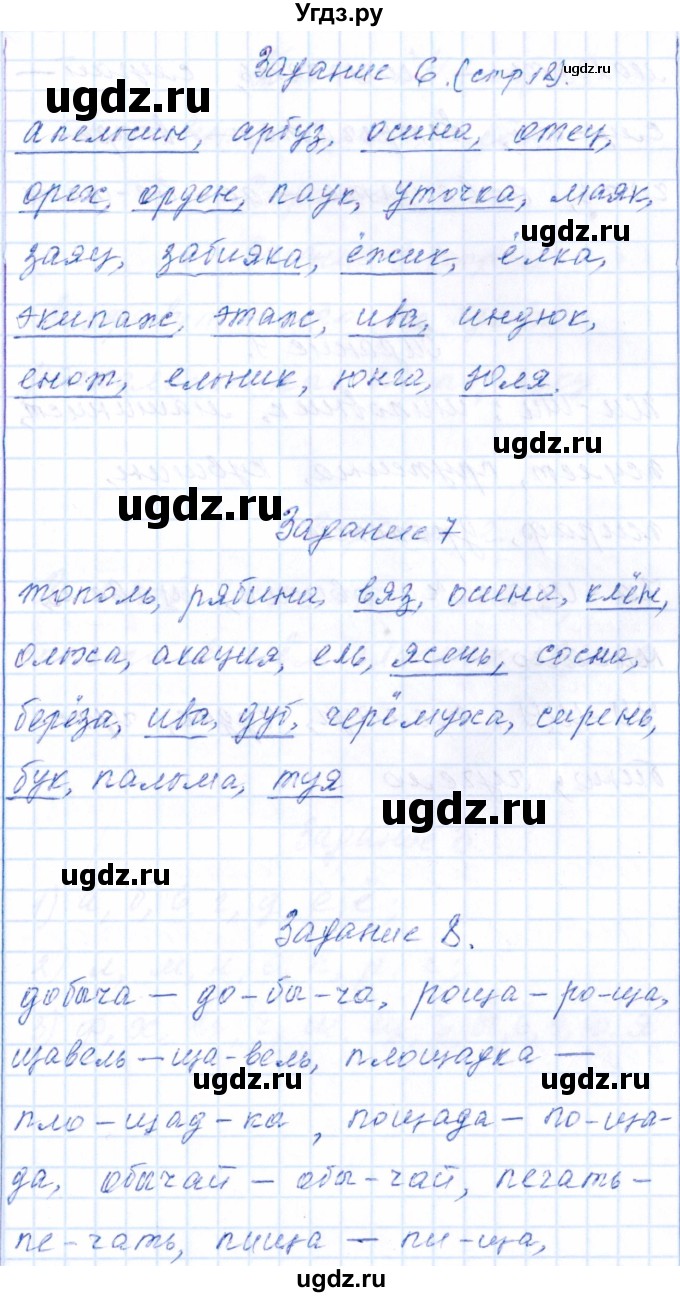 Угдз.ру
Задание 6. (стр 12).
ugdz.ru
ugdz.ru
апельсин, арбуз, осина, отец,
орех, орден, паук, уточка, маяк,
ugdz.ru
заяц, забияка, ёжик, ёлка,
экипаж, этаж, ива, индюк,
енот, ельник, юнга, Юля.
ugdz.ru
ugdz.ru
Задание 7
тополь, рябина, вяз, осина, клён,
ольха, акация, ель, ясень, сосна,
берёза, ива, дуб, черёмуха, сирень,
бук, пальма, туя
ugdz.ru
ugdz.ru
Задание 8.
добыча – до-бы-ча, роща – ро-ща,
щавель – ща-вель, площадка –
ugdz.ru
ugdz.ru
пло-щад-ка, пощада – по-ща-
да, обычай – обы-чай, печать –
пе-чать, пища – пи-ща,
ugdz.ru
ugdz.ru